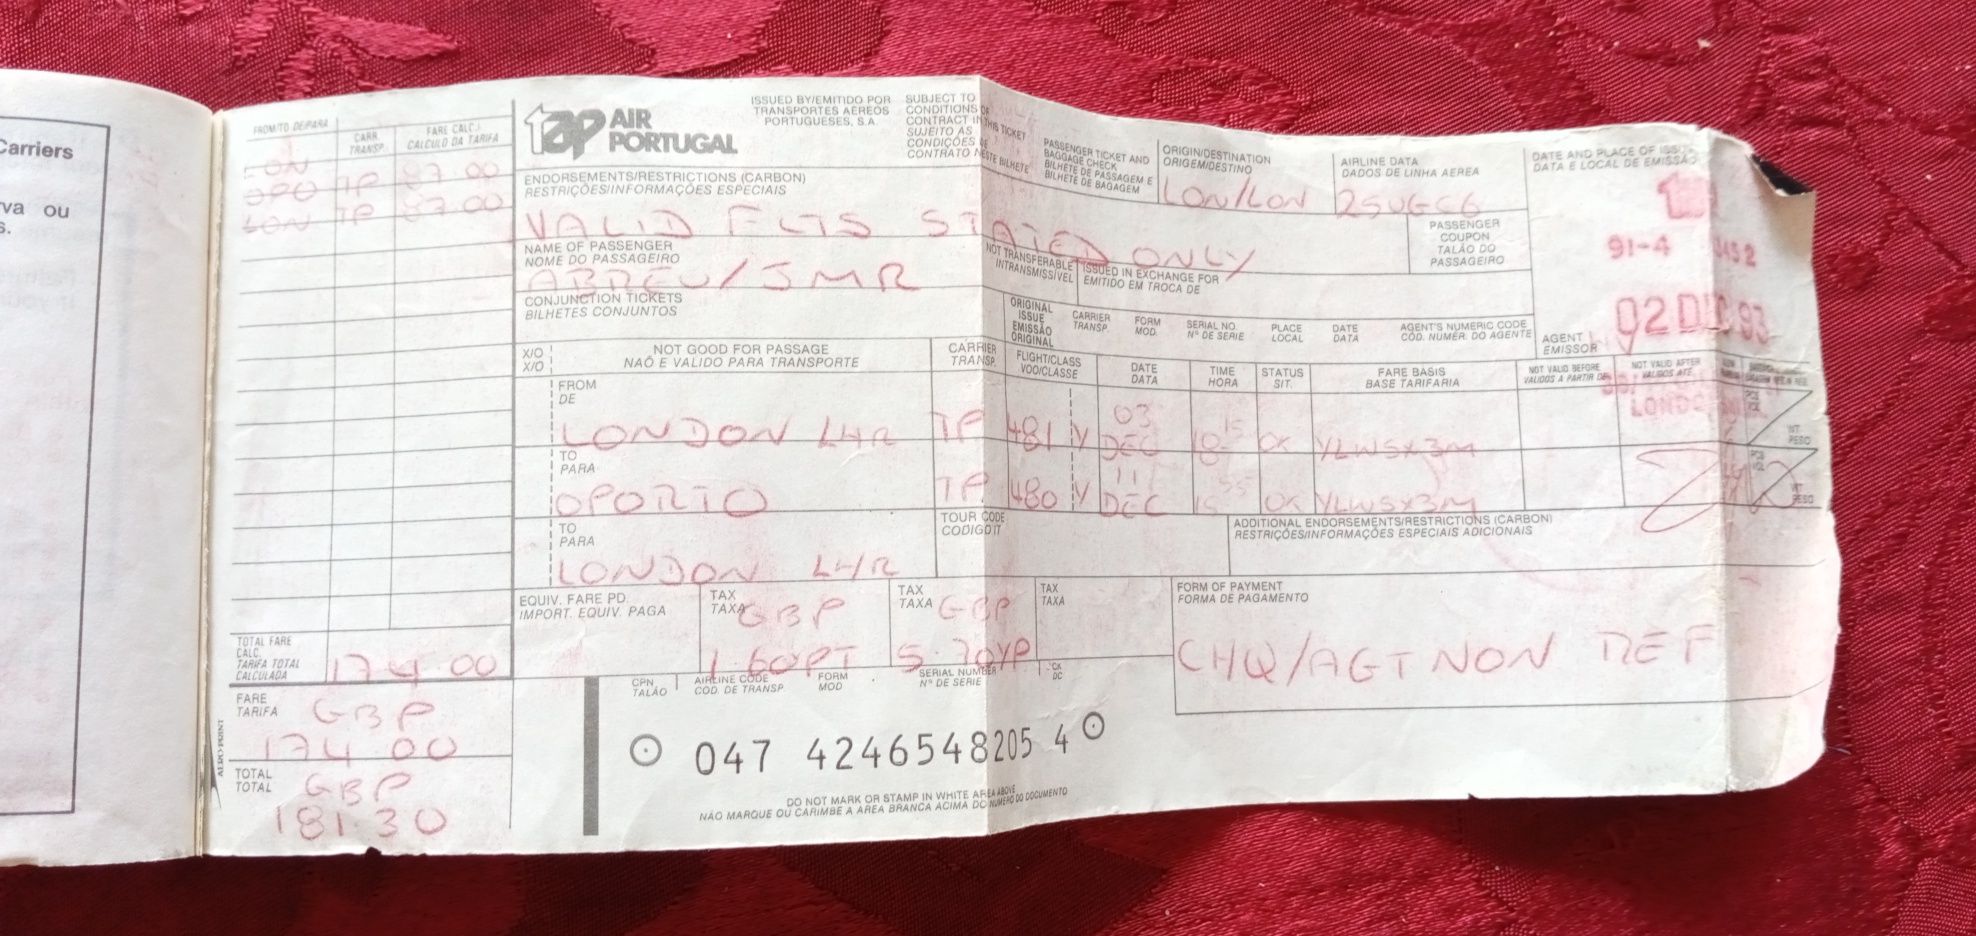 Carriers
va ou
s.
FROM/TO DE/PARA
CARR. TRANSP.
FARE CALC./
CALCULO DA TARIFA
LON
OPO TP 87.00
LON TP 87.00
TOTAL FARE
CALC.
TARIFA TOTAL
CALCULADA
174.00
FARE
TARIFA
GBP
174.00
TOTAL
TOTAL
GBP
181.30
AERO-PRINT
TAP AIR
PORTUGAL
ISSUED BY/EMITIDO POR
TRANSPORTES AÉREOS
PORTUGUESES, S.A.
SUBJECT TO
CONDITIONS OF
CONTRACT IN THIS TICKET
SUJEITO AS
CONDIÇÕES DE
CONTRATO NESTE BILHETE
PASSENGER TICKET AND
BAGGAGE CHECK
BILHETE DE PASSAGEM E
BILHETE DE BAGAGEM
ORIGIN/DESTINATION
ORIGEM/DESTINO
LON/LON
AIRLINE DATA
DADOS DE LINHA AEREA
DATE AND PLACE OF ISSUE
DATA E LOCAL DE EMISSÃO
91-4
02 DEC 93
LONDON
ENDORSEMENTS/RESTRICTIONS (CARBON)
RESTRIÇÕES/INFORMAÇÕES ESPECIAIS
VALID FLTS STATED ONLY
PASSENGER
COUPON
TALÃO DO
PASSAGEIRO
NAME OF PASSENGER
NOME DO PASSAGEIRO
ABREU/JMR
NOT TRANSFERABLE
INTRANSMISSÍVEL
ISSUED IN EXCHANGE FOR
EMITIDO EM TROCA DE
CONJUNCTION TICKETS
BILHETES CONJUNTOS
ORIGINAL
ISSUE
EMISSÃO
ORIGINAL
CARRIER
TRANSP.
FORM
MOD.
SERIAL NO.
Nº DE SERIE
PLACE
LOCAL
DATE
DATA
AGENT'S NUMERIC CODE
COD. NUMER. DO AGENTE
AGENT
EMISSOR
X/O
X/O
NOT GOOD FOR PASSAGE
NAÕ E VALIDO PARA TRANSPORTE
CARRIER
TRANSP.
FLIGHT/CLASS
VOO/CLASSE
DATE
DATA
TIME
HORA
STATUS
SIT.
FARE BASIS
BASE TARIFARIA
NOT VALID BEFORE
VALIDOS A PARTIR DE
NOT VALID AFTER
VALIDOS ATÉ
FROM
DE
LONDON LHR TP 481 Y 03 DEC 18 15 OK YLWSX3M
TO
PARA
OPORTO TP 480 Y 11 DEC 15 55 OK YLWSX3M
TO
PARA
LONDON LHR
PCS
WT
PESO
PCS
WT
PESO
TOUR CODE
CODIGO IT
ADDITIONAL ENDORSEMENTS/RESTRICTIONS (CARBON)
RESTRIÇÕES/INFORMAÇÕES ESPECIAIS ADICIONAIS
EQUIV. FARE PD.
IMPORT. EQUIV. PAGA
TAX
TAXA
GBP
1.60PT
TAX
TAXA
GBP
5.70YP
TAX
TAXA
FORM OF PAYMENT
FORMA DE PAGAMENTO
CHQ/AGT NON REF
CPN
TALÃO
AIRLINE CODE
COD. DE TRANSP.
FORM
MOD
SERIAL NUMBER
Nº DE SERIE
CK
DC
047 4246548205 4
DO NOT MARK OR STAMP IN WHITE AREA ABOVE
NÃO MARQUE OU CARIMBE A AREA BRANCA ACIMA DO NUMERO DO DOCUMENTO